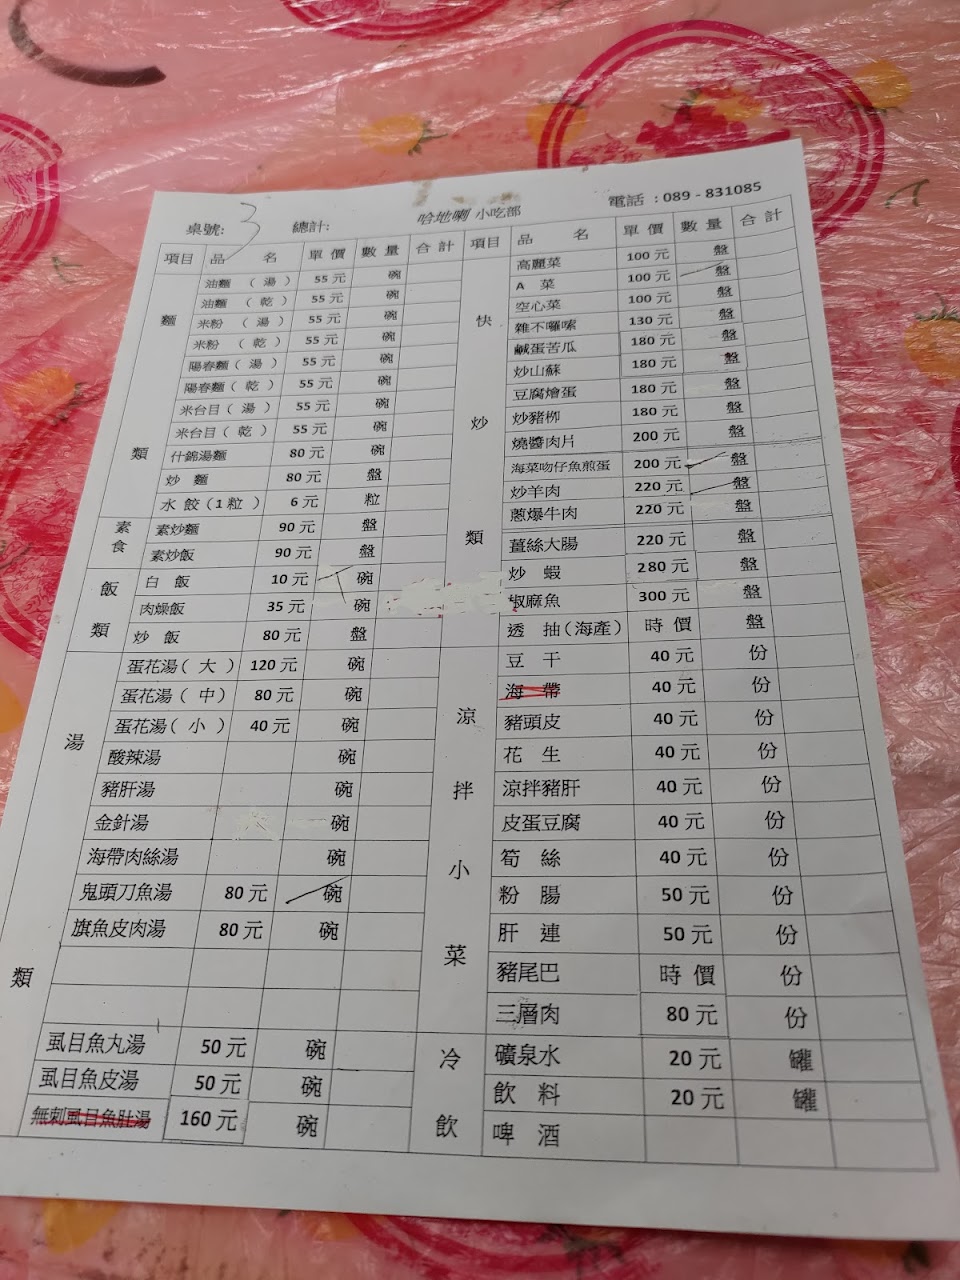 電話：089 - 831085
桌號: 3 總計: 哈地喇 小吃部
項目 品 名 單 價 數 量 合 計 項目 品 名 單 價 數 量 合 計
麵 類
油麵 （ 湯 ） 55 元 碗
油麵 （ 乾 ） 55 元 碗
米粉 （ 湯 ） 55 元 碗
米粉 （ 乾 ） 55 元 碗
陽春麵（ 湯 ） 55 元 碗
陽春麵（ 乾 ） 55 元 碗
米台目（ 湯 ） 55 元 碗
米台目（ 乾 ） 55 元 碗
什錦湯麵 80 元 碗
炒 麵 80 元 盤
水 餃（1 粒 ） 6 元 粒
素食
素炒麵 90 元 盤
素炒飯 90 元 盤
飯 類
白 飯 10 元 碗
肉燥飯 35 元 碗
炒 飯 80 元 盤
湯 類
蛋花湯（ 大 ） 120 元 碗
蛋花湯（ 中 ） 80 元 碗
蛋花湯（ 小 ） 40 元 碗
酸辣湯 碗
豬肝湯 碗
金針湯 碗
海帶肉絲湯 碗
鬼頭刀魚湯 80 元 碗
旗魚皮肉湯 80 元 碗
虱目魚丸湯 50 元 碗
虱目魚皮湯 50 元 碗
無刺虱目魚肚湯 160 元 碗
快 炒 類
高麗菜 100 元 盤
A 菜 100 元 盤
空心菜 100 元 盤
雜不囉嗦 130 元 盤
鹹蛋苦瓜 180 元 盤
炒山蘇 180 元 盤
豆腐燴蛋 180 元 盤
炒豬柳 180 元 盤
燒醬肉片 200 元 盤
海菜吻仔魚煎蛋 200 元 盤
炒羊肉 220 元 盤
蔥爆牛肉 220 元 盤
薑絲大腸 220 元 盤
炒 蝦 280 元 盤
椒麻魚 300 元 盤
透 抽（海產） 時 價 盤
涼 拌 小 菜
豆 干 40 元 份
海 帶 40 元 份
豬頭皮 40 元 份
花 生 40 元 份
涼拌豬肝 40 元 份
皮蛋豆腐 40 元 份
筍 絲 40 元 份
粉 腸 50 元 份
肝 連 50 元 份
豬尾巴 時 價 份
三層肉 80 元 份
冷 飲
礦泉水 20 元 罐
飲 料 20 元 罐
啤 酒